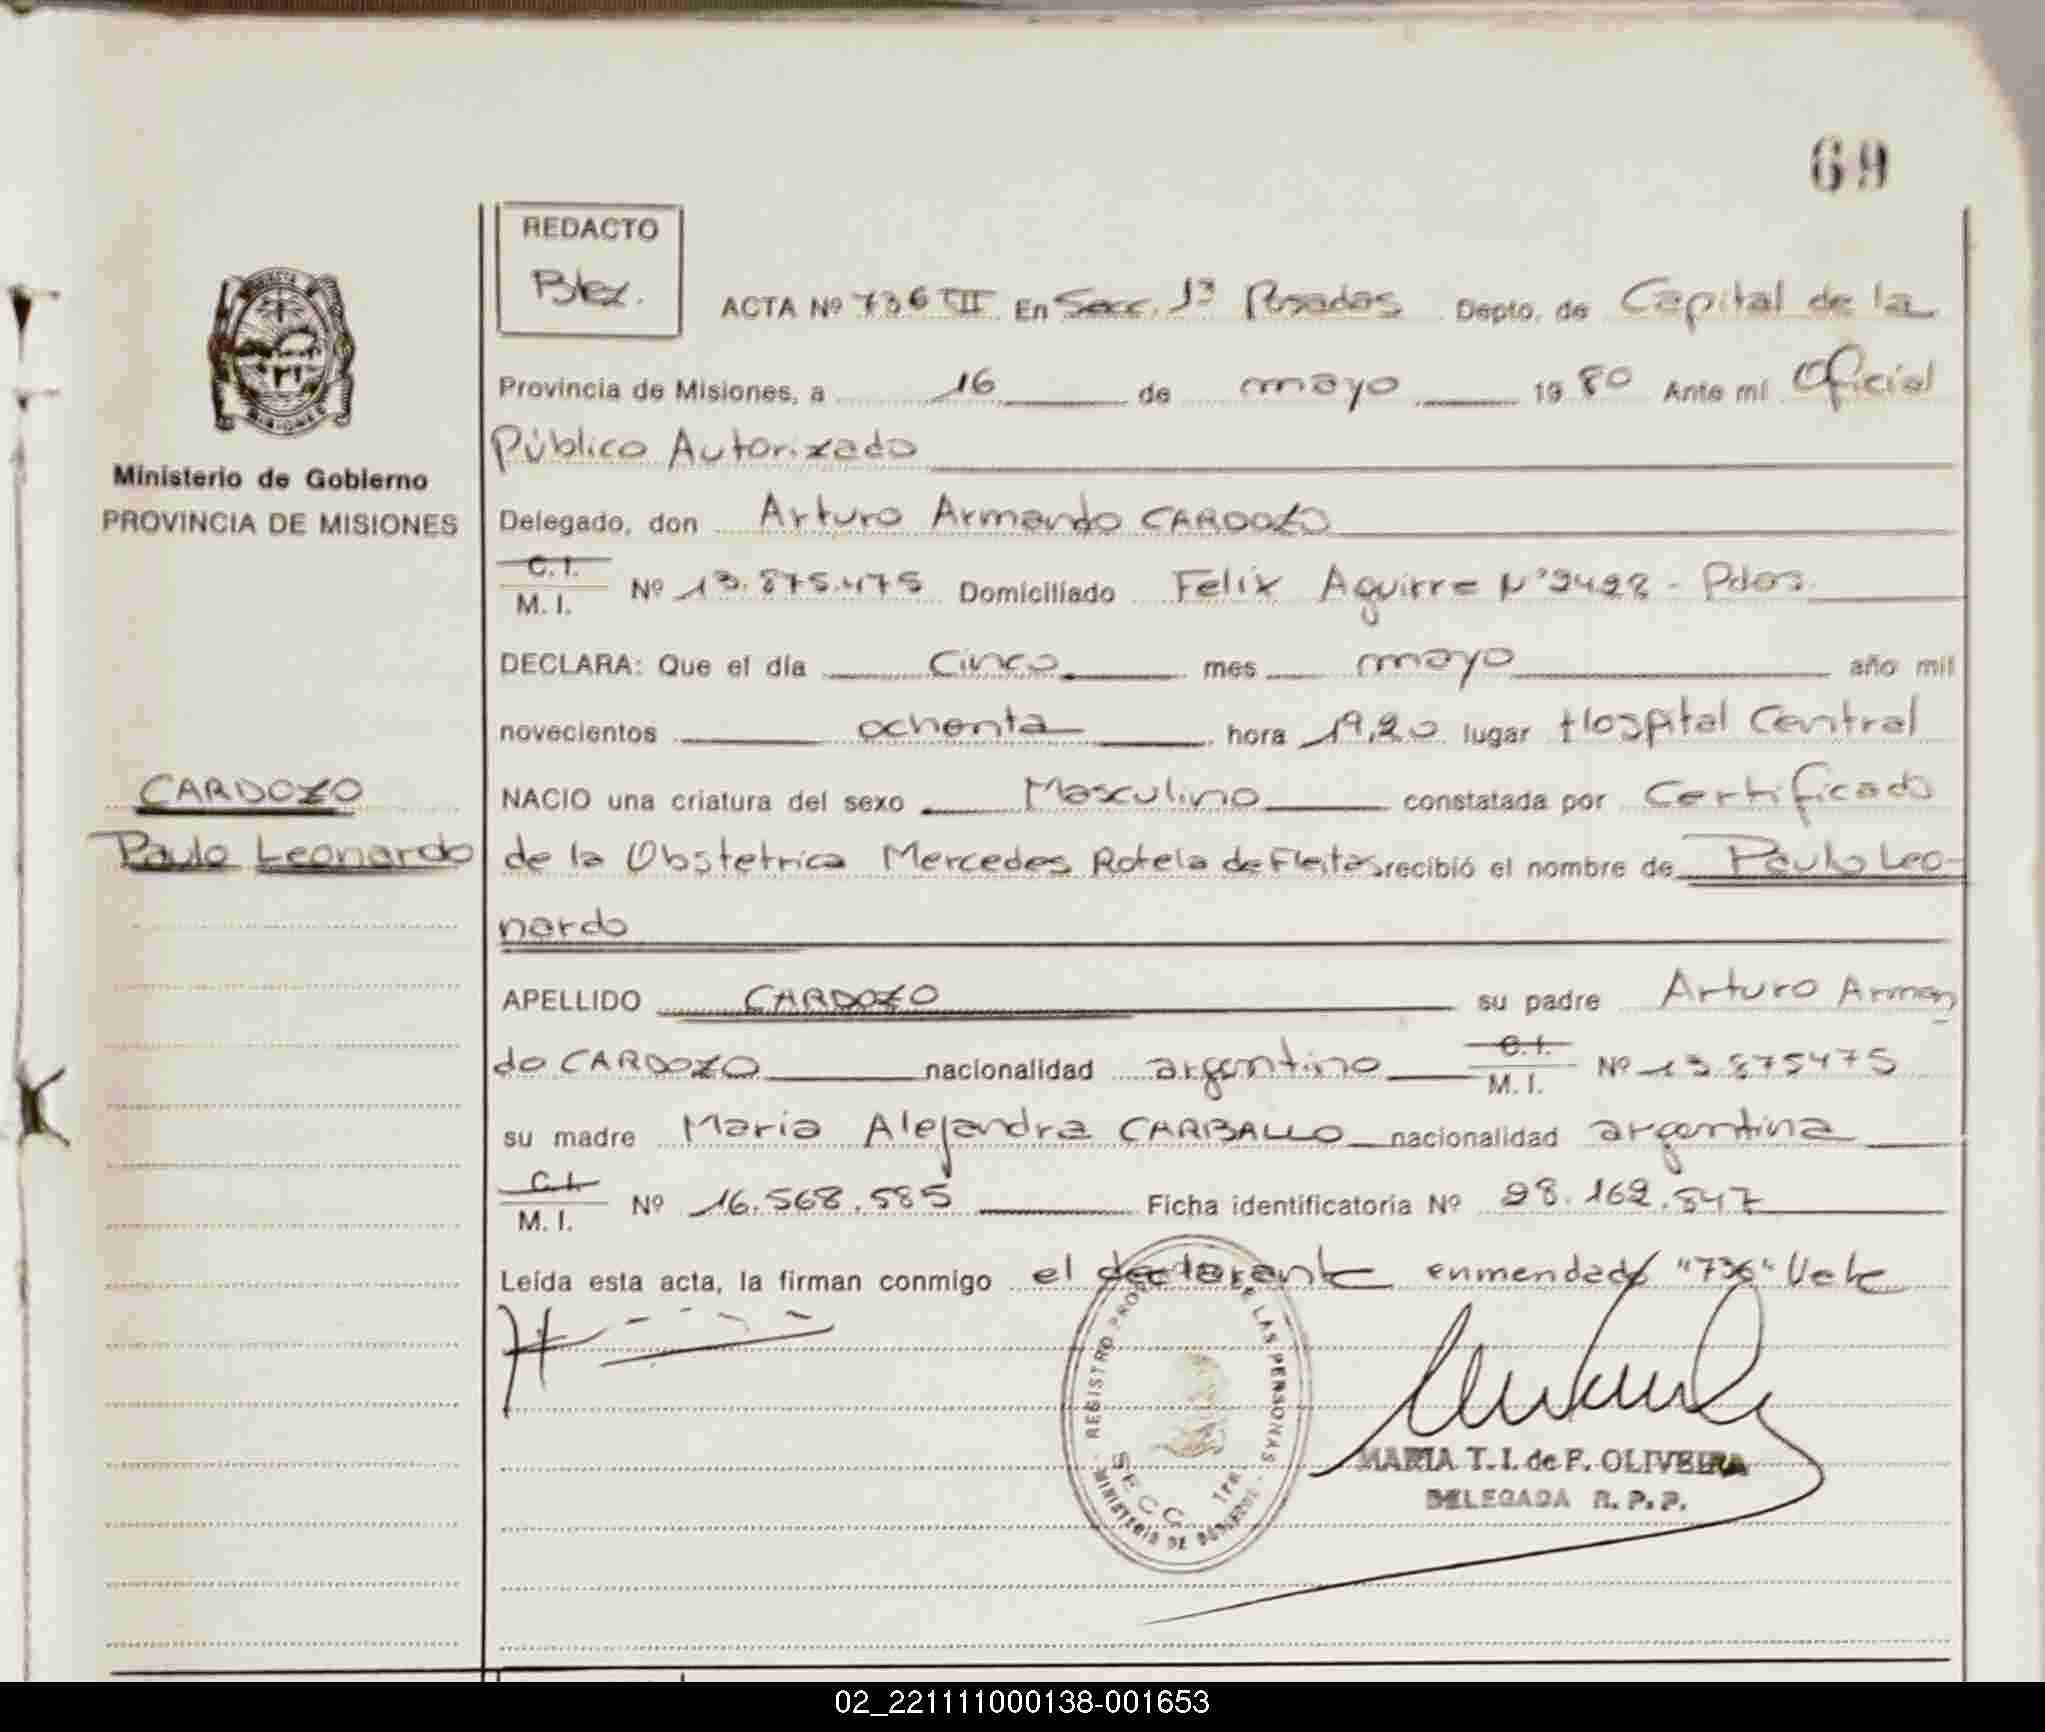 69
REDACTO
Blez.
ACTA Nº 736 III En Secc. 1ª Posadas Depto. de Capital de la
Provincia de Misiones, a 16 de mayo 1980 Ante mí Oficial
Público Autorizado
Ministerio de Gobierno
PROVINCIA DE MISIONES
Delegado, don Arturo Armando CARDOZO
C. I.
M. I. Nº 13.875.475 Domiciliado Felix Aguirre Nº 2428 - Pdas.
DECLARA: Que el día Cinco mes mayo año mil
novecientos ochenta hora 19,20 lugar Hospital Central
CARDOZO
Paulo Leonardo
NACIO una criatura del sexo Masculino constatada por Certificado
de la Obstetrica Mercedes Rotela de Fleitas recibió el nombre de Paulo Leo-
nardo
APELLIDO CARDOZO su padre Arturo Arman
do CARDOZO nacionalidad argentino C. I. M. I. Nº 13.875475
su madre Maria Alejandra CARBALLO nacionalidad argentina
C. I.
M. I. Nº 16.568.585 Ficha identificatoria Nº 28.162.847
Leída esta acta, la firman conmigo el declarante enmendado "736" Vale
REGISTRO PROV DE LAS PERSONAS
SECC. 1RA
MINISTERIO DE GOBIERNO
MARIA T. I. de F. OLIVEIRA
DELEGADA R. P. P.
02_221111000138-001653